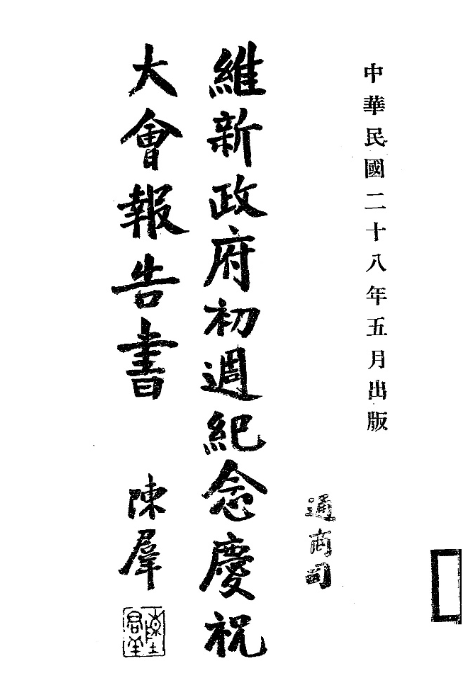 中華民國二十八年五月出版
通商司
維新政府初週紀念慶祝
大會報告書
陳羣